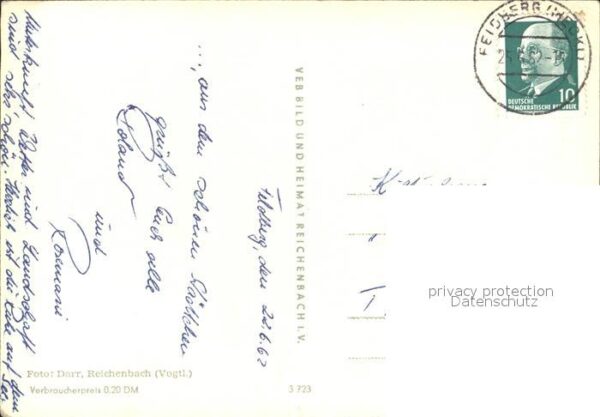 Feldberg, den 22.6.62
... aus dem schönen Städtchen
grüßt Euch alle
Roland
und
Rosemarie
Unterkunft, Wetter und Landschaft
sind sehr schön. Herrlich ist die Ruhe auf dem
See.
VEB BILD UND HEIMAT REICHENBACH I. V.
Foto: Darr, Reichenbach (Vogtl.)
Verbraucherpreis 0,20 DM
3 723
FELDBERG (MECKL)
10
DEUTSCHE
DEMOKRATISCHE REPUBLIK
"
privacy protection
Datenschutz